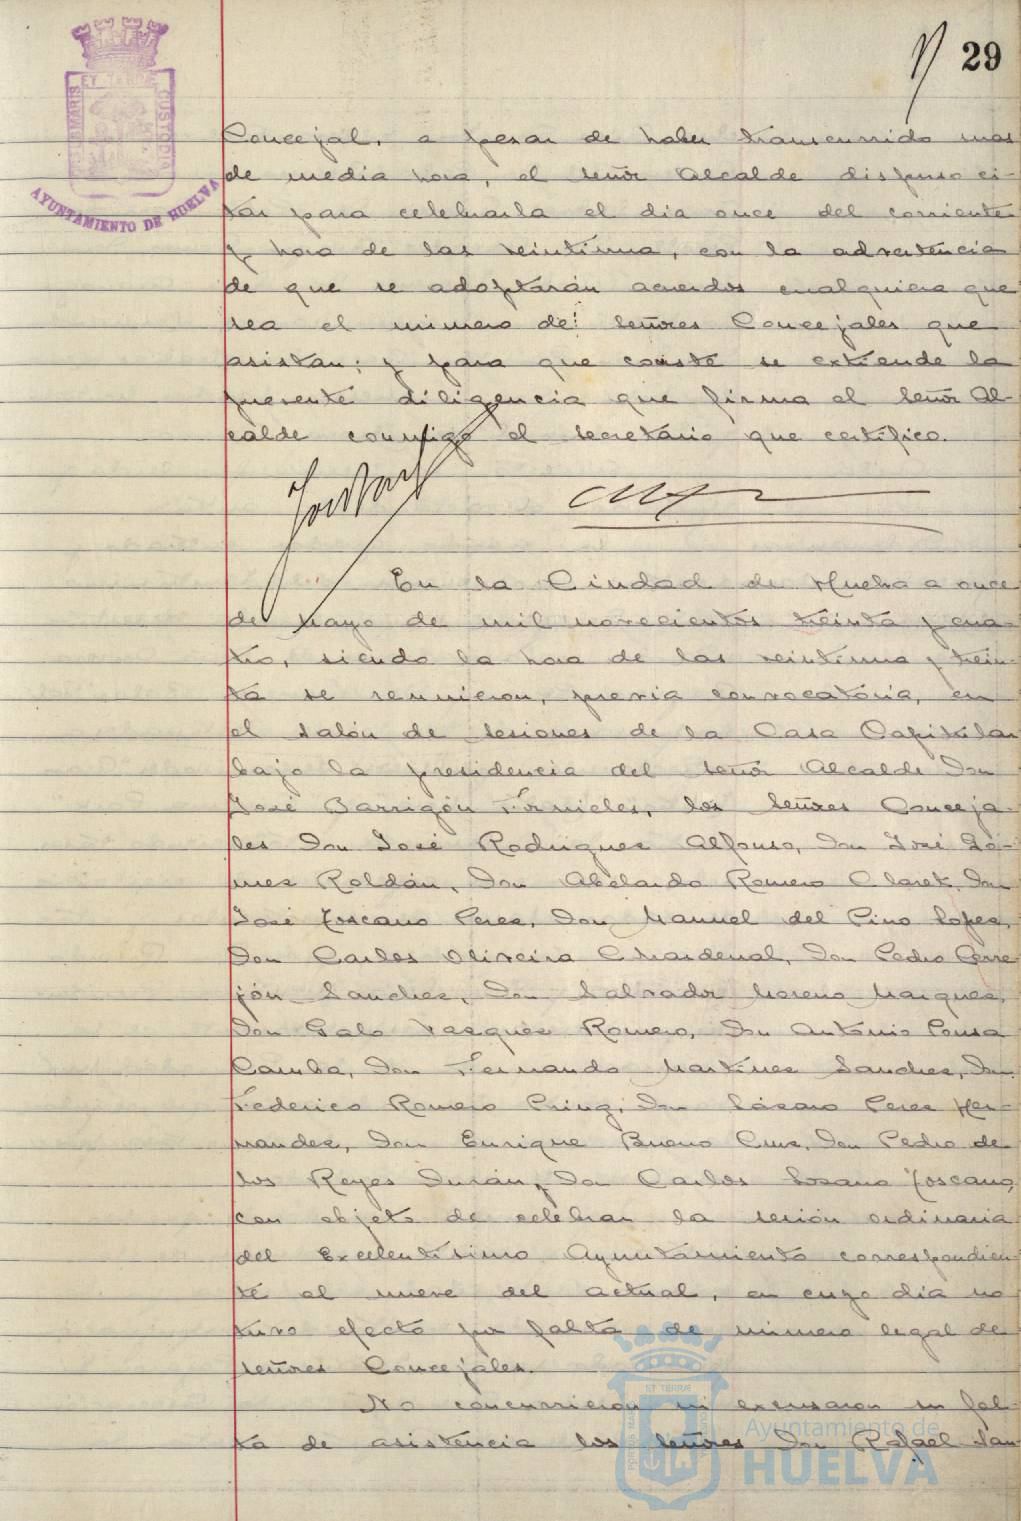 29
PORTUS MARIS ET TERRAE CUSTODIA
AYUNTAMIENTO DE HUELVA
Concejal, a pesar de haber transcurrido mas
de media hora, el señor Alcalde dispuso ci-
tar para celebrarla el dia once del corriente
y hora de las veintiuna, con la advertencia
de que se adoptarán acuerdos cualquiera que
sea el número de señores Concejales que
asistan; y para que conste se extiende la
presente diligencia que firma el señor Al-
calde conmigo el secretario que certifico.
En la Ciudad de Huelva a once
de Mayo de mil novecientos treinta y cua-
tro, siendo la hora de las veintiuna y trein-
ta se reunieron, previa convocatoria, en
el salón de sesiones de la Casa Capitular
bajo la presidencia del señor Alcalde Don
José Barrigón Fornieles, los señores Conceja-
les Don José Rodriguez Alfonso, Don José Gó-
mez Roldán, Don Abelardo Romero Claret, Don
José Toscano Perez, Don Manuel del Pino Lopez,
Don Carlos Oliveira Chardenal, Don Pedro Cerre
jón Sanchez, Don Salvador Moreno Marquez,
Don Galo Vazquez Romero, Don Antonio Ponsa
Camba, Don Fernando Martinez Sanchez, Don
Federico Romero Pring, Don Lázaro Perez Her-
nandez, Don Enrique Bueno Cruz, Don Pedro de
los Reyes Durán, Don Carlos Lozano Toscano,
con objeto de celebrar la sesión ordinaria
del Excelentisimo Ayuntamiento correspondien-
te al nueve del actual, en cuyo dia no
tuvo efecto por falta de número legal de
señores Concejales.
No concurrieron ni excusaron su fal-
ta de asistencia los señores Don Rafael San
Ayuntamiento de
HUELVA